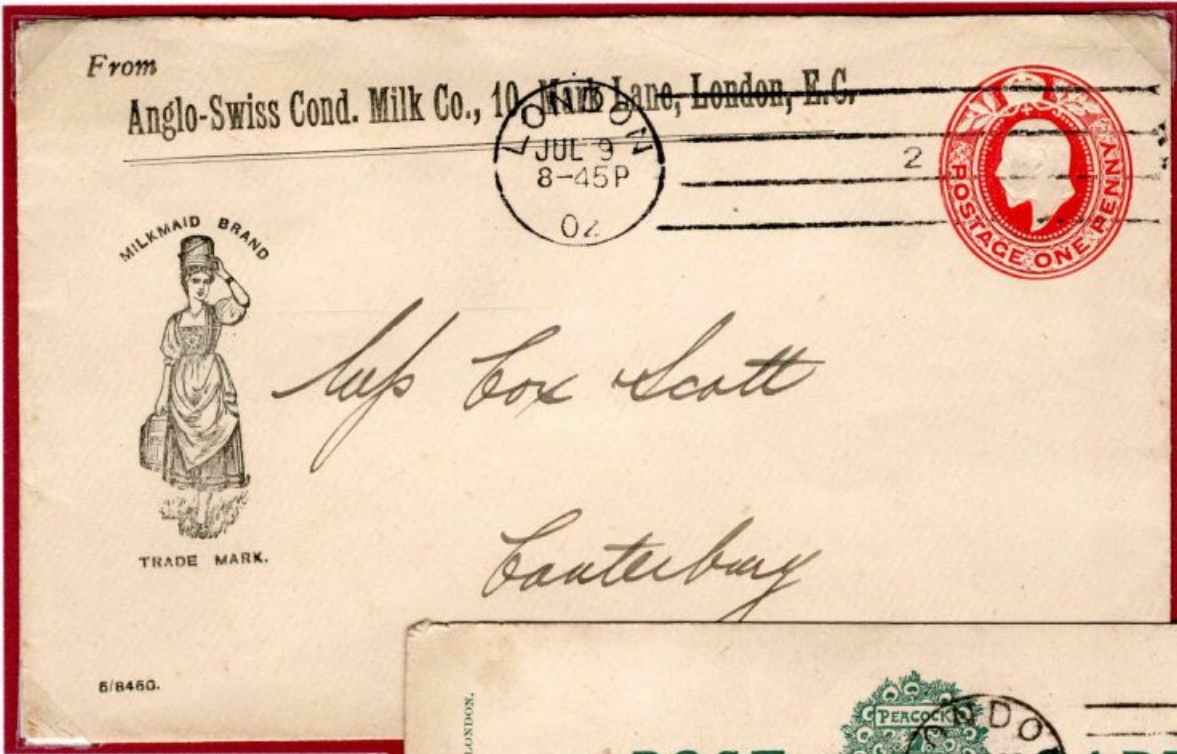 From
Anglo-Swiss Cond. Milk Co., 10, Mark Lane, London, E.C.
LONDON
JUL 9
8-45P
02
2
POSTAGE ONE PENNY
MILKMAID BRAND
TRADE MARK.
Cox Scott
Canterbury
5/8460.
LONDON.
PEACOCK